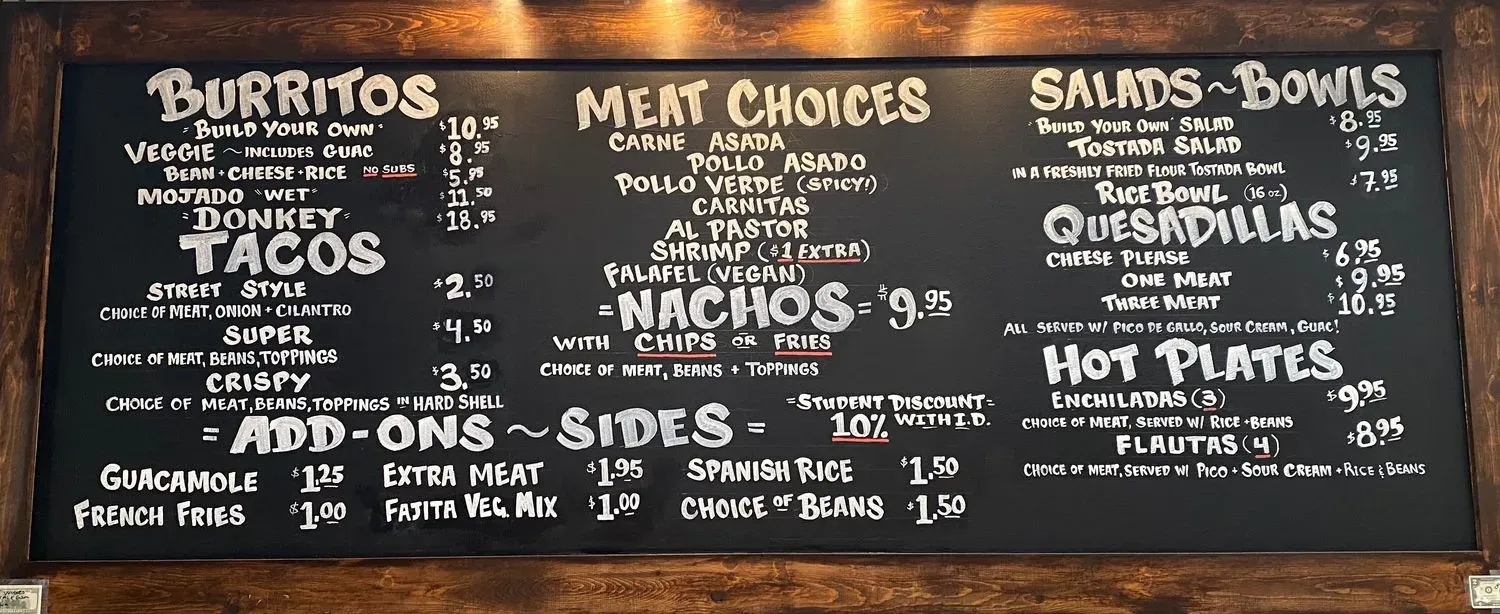 BURRITOS
"BUILD YOUR OWN" $10.95
VEGGIE ~ INCLUDES GUAC $8.95
BEAN + CHEESE + RICE NO SUBS $5.95
MOJADO "WET" $11.50
"DONKEY" $18.95
TACOS
STREET STYLE $2.50
CHOICE OF MEAT, ONION + CILANTRO
SUPER $4.50
CHOICE OF MEAT, BEANS, TOPPINGS
CRISPY $3.50
CHOICE OF MEAT, BEANS, TOPPINGS IN HARD SHELL
MEAT CHOICES
CARNE ASADA
POLLO ASADO
POLLO VERDE (SPICY!)
CARNITAS
AL PASTOR
SHRIMP ($1 EXTRA)
FALAFEL (VEGAN)
= NACHOS = $9.95
WITH CHIPS OR FRIES
CHOICE OF MEAT, BEANS + TOPPINGS
SALADS ~ BOWLS
"BUILD YOUR OWN" SALAD $8.95
TOSTADA SALAD $9.95
IN A FRESHLY FRIED FLOUR TOSTADA BOWL
RICE BOWL (16 OZ) $7.95
QUESADILLAS
CHEESE PLEASE $6.95
ONE MEAT $9.95
THREE MEAT $10.95
ALL SERVED W/ PICO DE GALLO, SOUR CREAM, GUAC!
HOT PLATES
ENCHILADAS (3) $9.95
CHOICE OF MEAT, SERVED W/ RICE + BEANS
FLAUTAS (4) $8.95
CHOICE OF MEAT, SERVED W/ PICO + SOUR CREAM + RICE & BEANS
= ADD-ONS ~ SIDES =
=STUDENT DISCOUNT=
10% WITH I.D.
GUACAMOLE $1.25 EXTRA MEAT $1.95 SPANISH RICE $1.50
FRENCH FRIES $1.00 FAJITA VEG. MIX $1.00 CHOICE OF BEANS $1.50